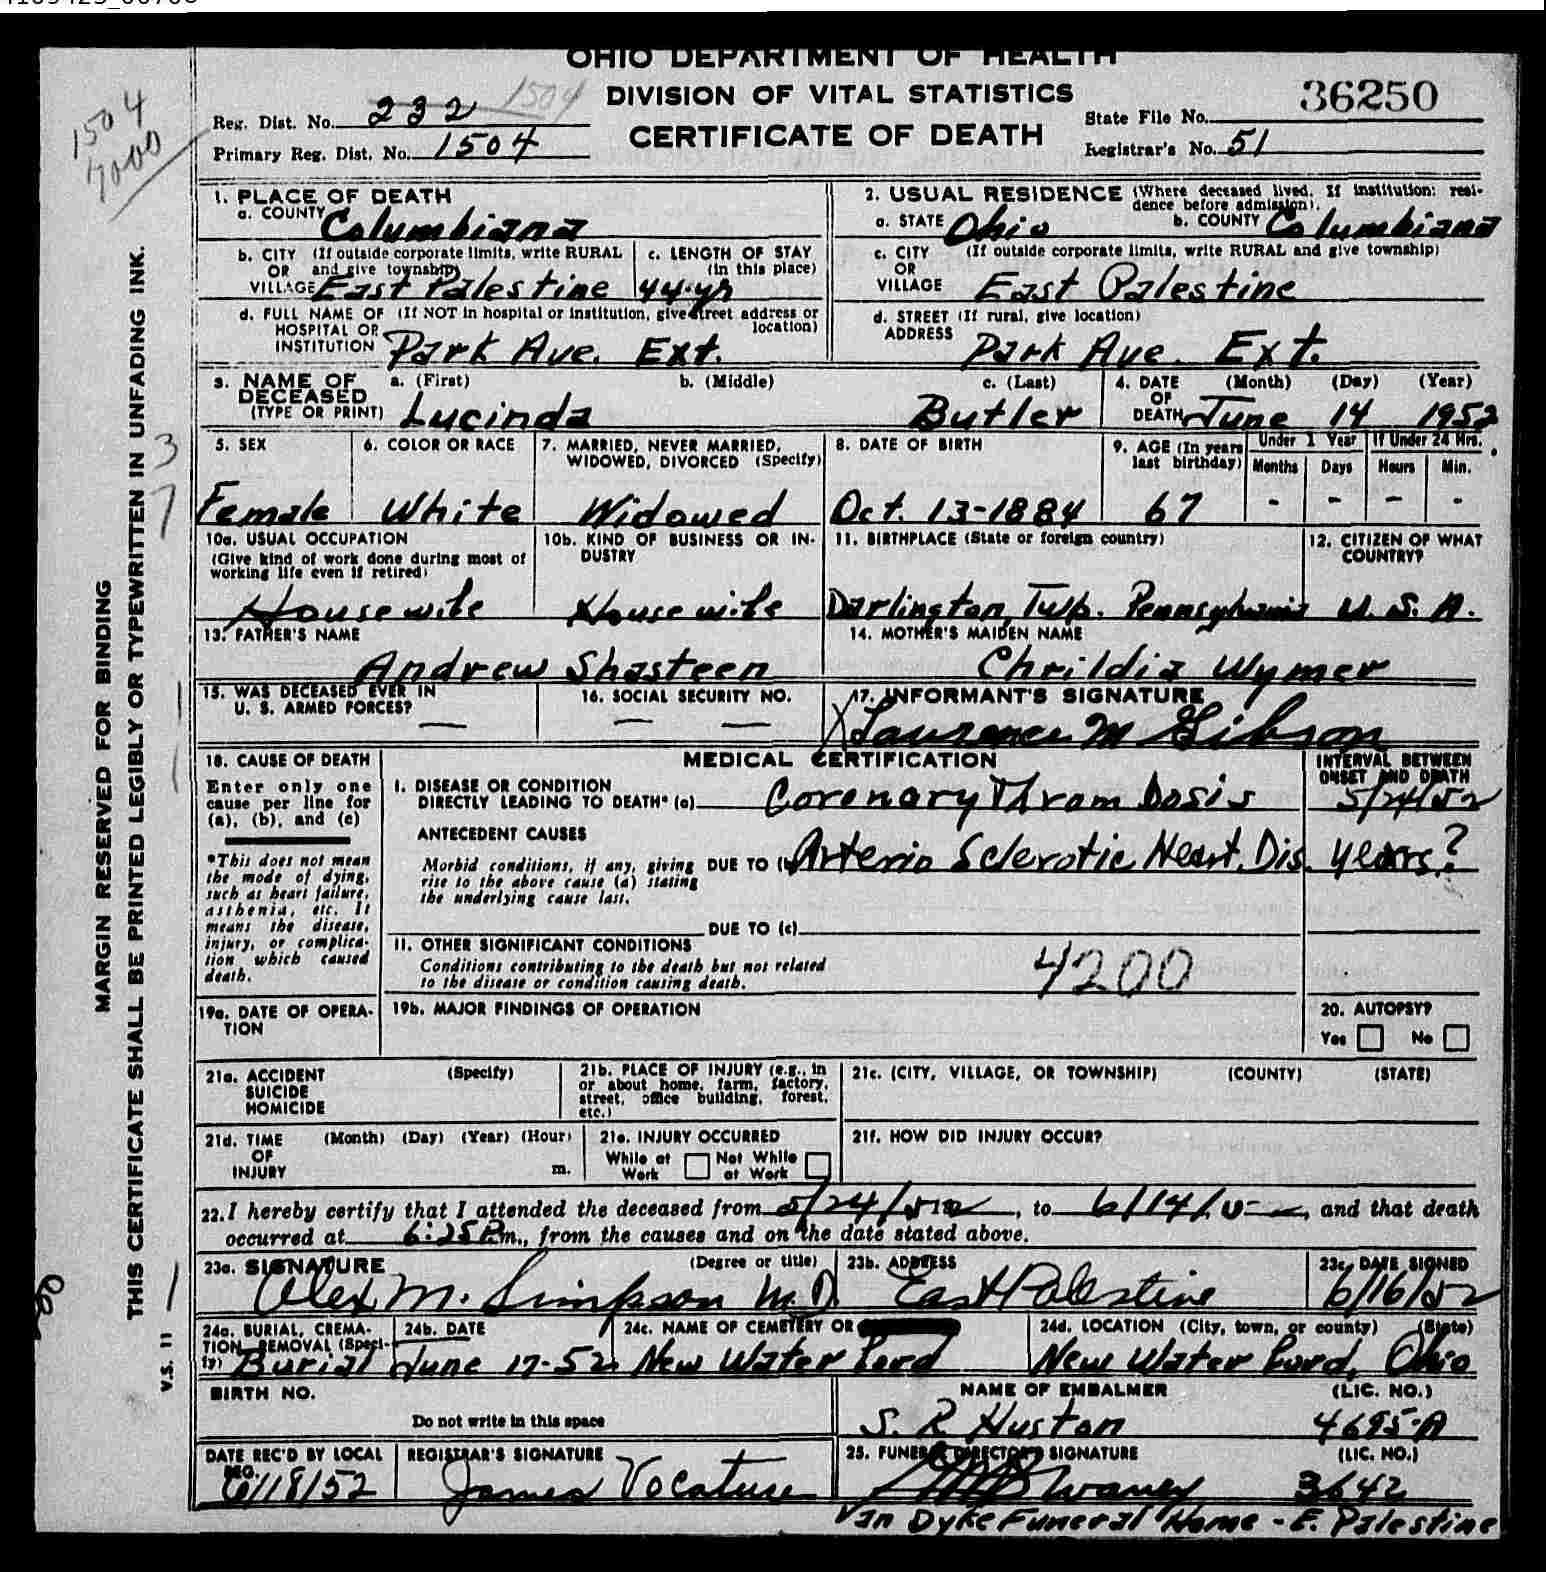 OHIO DEPARTMENT OF HEALTH
DIVISION OF VITAL STATISTICS
CERTIFICATE OF DEATH
Reg. Dist. No. 232 1504
Primary Reg. Dist. No. 1504
State File No. 36250
Registrar's No. 51
1504
7000
MARGIN RESERVED FOR BINDING
THIS CERTIFICATE SHALL BE PRINTED LEGIBLY OR TYPEWRITTEN IN UNFADING INK.
V.S. 11
3
7
1. PLACE OF DEATH
a. COUNTY Columbiana
b. CITY (If outside corporate limits, write RURAL
OR and give township)
VILLAGE East Palestine
c. LENGTH OF STAY
(in this place)
44 yr
d. FULL NAME OF (If NOT in hospital or institution, give street address or
HOSPITAL OR location)
INSTITUTION Park Ave. Ext.
2. USUAL RESIDENCE (Where deceased lived. If institution: resi-
dence before admission).
a. STATE Ohio b. COUNTY Columbiana
c. CITY (If outside corporate limits, write RURAL and give township)
OR
VILLAGE East Palestine
d. STREET (If rural, give location)
ADDRESS Park Ave. Ext.
3. NAME OF DECEASED (TYPE OR PRINT)
a. (First) b. (Middle) c. (Last)
Lucinda Butler
4. DATE OF DEATH (Month) (Day) (Year)
June 14 1952
5. SEX
Female
6. COLOR OR RACE
White
7. MARRIED, NEVER MARRIED,
WIDOWED, DIVORCED (Specify)
Widowed
8. DATE OF BIRTH
Oct. 13-1884
9. AGE (In years
last birthday)
67
Under 1 Year
Months Days
- -
If Under 24 Hrs.
Hours Min.
- -
10a. USUAL OCCUPATION
(Give kind of work done during most of
working life even if retired)
Housewife
10b. KIND OF BUSINESS OR IN-
DUSTRY
Housewife
11. BIRTHPLACE (State or foreign country)
Darlington, Twp. Pennsylvania
12. CITIZEN OF WHAT
COUNTRY?
U. S. A.
13. FATHER'S NAME
Andrew Shasteen
14. MOTHER'S MAIDEN NAME
Chrildia Wymer
15. WAS DECEASED EVER IN
U. S. ARMED FORCES?
—
16. SOCIAL SECURITY NO.
— —
17. INFORMANT'S SIGNATURE
X Laurence M Gibson
18. CAUSE OF DEATH
Enter only one
cause per line for
(a), (b), and (c)
*This does not mean
the mode of dying,
such as heart failure,
asthenia, etc. It
means the disease,
injury, or complica-
tion which caused
death.
MEDICAL CERTIFICATION
INTERVAL BETWEEN
ONSET AND DEATH
I. DISEASE OR CONDITION
DIRECTLY LEADING TO DEATH* (a) Coronary Thrombosis 5/24/52
ANTECEDENT CAUSES
Morbid conditions, if any, giving
rise to the above cause (a) stating
the underlying cause last.
DUE TO (b) Arterio Sclerotic Heart Dis. years?
DUE TO (c)
II. OTHER SIGNIFICANT CONDITIONS
Conditions contributing to the death but not related
to the disease or condition causing death.
4200
19a. DATE OF OPERA-
TION
19b. MAJOR FINDINGS OF OPERATION
20. AUTOPSY?
Yes No
21a. ACCIDENT (Specify)
SUICIDE
HOMICIDE
21b. PLACE OF INJURY (e.g., in
or about home, farm, factory,
street, office building, forest,
etc.)
21c. (CITY, VILLAGE, OR TOWNSHIP) (COUNTY) (STATE)
21d. TIME (Month) (Day) (Year) (Hour)
OF
INJURY m.
21e. INJURY OCCURRED
While at Work Not While at Work
21f. HOW DID INJURY OCCUR?
22. I hereby certify that I attended the deceased from 5/24/52, to 6/14/52, and that death
occurred at 6:25 P.m., from the causes and on the date stated above.
23a. SIGNATURE (Degree or title)
Alex M. Simpson M.D.
23b. ADDRESS
East Palestine
23c. DATE SIGNED
6/16/52
24a. BURIAL, CREMA-
TION, REMOVAL (Speci-
fy) Burial
24b. DATE
June 17-52
24c. NAME OF CEMETERY OR
New Waterford
24d. LOCATION (City, town, or county) (State)
New Waterford, Ohio
BIRTH NO.
Do not write in this space
NAME OF EMBALMER (LIC. NO.)
S. R Huston 4695-A
DATE REC'D BY LOCAL
REG.
6/18/52
REGISTRAR'S SIGNATURE
James Vocature
25. FUNERAL DIRECTOR'S SIGNATURE (LIC. NO.)
3642
Van Dyke Funeral Home - E. Palestine